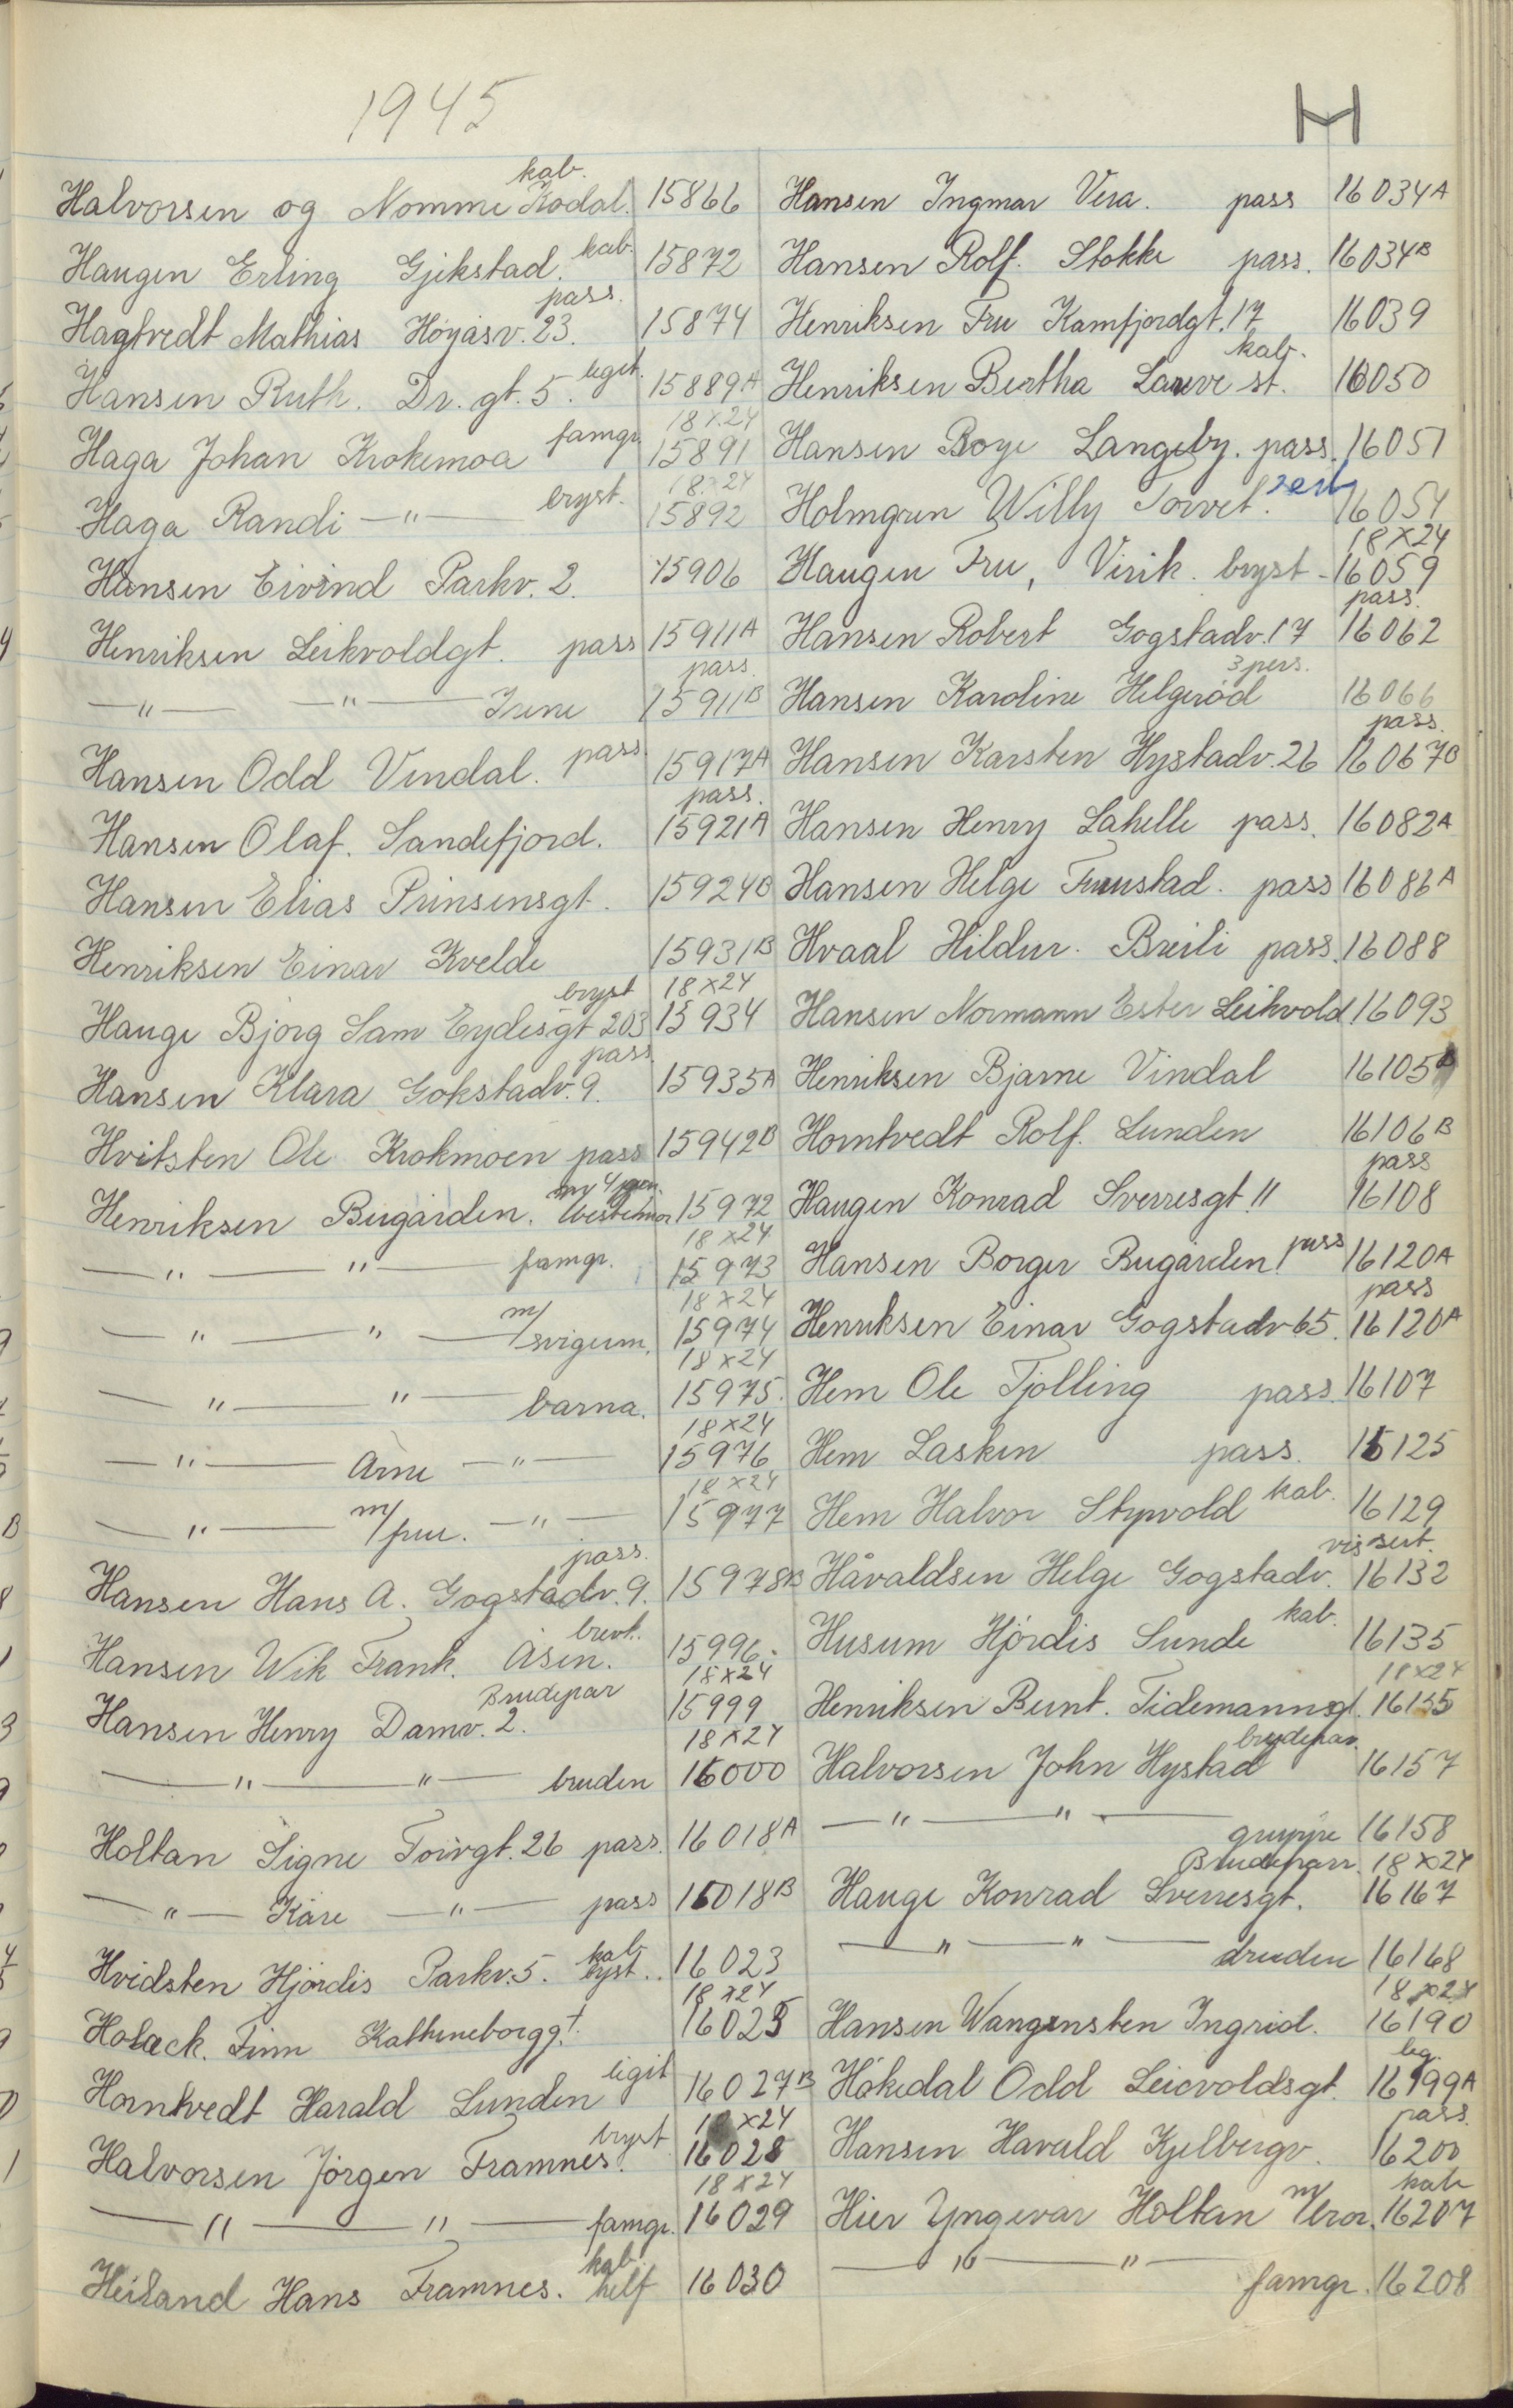 1945
H
Halvorsen og Nomme Kodal. kab. 15866
Haugen Erling Gjekstad. kab. 15872
Hagtvedt Mathias Høyåsv. 23. pass. 15874
Hansen Ruth. Dr. gt. 5. legit. 15889A
Haga Johan Krokemoa famgr. 18x24 15891
Haga Randi —"— bryst. 18x24 15892
Hansen Eivind Parkv. 2. 15906
Henriksen Leikvoldgt. pass 15911A
—"— —"— Irene pass. 15911B
Hansen Odd Vindal. pass 15917A
Hansen Olaf. Sandefjord. pass. 15921A
Hansen Elias Prinsensgt. 15924B
Henriksen Einar Kvelde 15931B
Hauge Bjørg Sam Eydesgt 203 bryst 18x24 15934
Hansen Klara Gokstadv. 9. pass 15935A
Hvitsten Ole Krokmoen pass 15942B
Henriksen Bugården. m/4 gen. bestemor 15972
—"— —"— famgr. 18x24 15973
—"— —"— m/ svigerm. 18x24 15974
—"— —"— barna. 18x24 15975.
—"— Arne —"— 18x24 15976
—"— m/fru. —"— 18x24 15977
Hansen Hans A. Gogstadv. 9. pass. 15978B
Hansen Wik Frank. Åsen. brevk. 15996.
Hansen Henry Damv. 2. Brudepar 18x24 15999
—"— —"— bruden 18x24 16000
Holtan Signe Torvgt. 26 pass. 16018A
—"— Kåre —"— pass 16018B
Hvidsten Hjørdis Parkv. 5. kab. bryst.. 16023
Holack. Finn Kathrineborggt. 18x24 16025
Horntvedt Harald Lunden legit 16027B
Halvorsen Jørgen Framnes. bryst 18x24 16028
—"— —"— famgr. 18x24 16029
Heiland Hans Framnes. kab. helf 16030
Hansen Ingmar Vera. pass 16034A
Hansen Rolf. Stokke pass. 16034B
Henriksen Fru Kamfjordgt. 17 16039
Henriksen Bertha Larvik st. kab. 16050
Hansen Boye Langeby. pass. 16051
Holmgren Willy Torvet. serv 16054
Haugen Fru, Virik. bryst - 18x24 16059
Hansen Robert Gogstadv. 17 pass. 16062
Hansen Karoline Helgerød 3 pers. 16066
Hansen Karsten Hystadv. 26 pass. 16067B
Hansen Henry Lahelle pass. 16082A
Hansen Helge Furustad. pass 16086A
Hvaal Hildur. Breili pass. 16088
Hansen Normann Ester Leikvold 16093
Henriksen Bjarne Vindal 16105
Horntvedt Rolf. Lunden 16106B
Haugen Konrad Sverresgt. 11 pass 16108
Hansen Borger Bugården! pass 16120A
Henriksen Einar Gogstadv 65. pass 16120A
Hem Ole Tjølling pass. 16107
Hem Lasken pass. 16125
Hem Halvor Styrvold kab. 16129
Håvaldsen Helge Gogstadv. vis sert. 16132
Husum Hjørdis Sunde kab. 16135
Henriksen Bernt. Tidemannsgt. 18x24 16135
Halvorsen John Hystad brudepar. 16157
—"— —"— gruppe 16158
Hauge Konrad Sverresgt. Brudeparr. 18x24 16167
—"— —"— bruden 16168
Hansen Wangensten Ingrid. 18x24 16190
Håkedal Odd Leicvoldsgt. leg. 16199A
Hansen Harald Kjelbergv. pass. 16200
Hier Yngevar Holtan m/bror. kab 16207
—"— —"— famgr. 16208